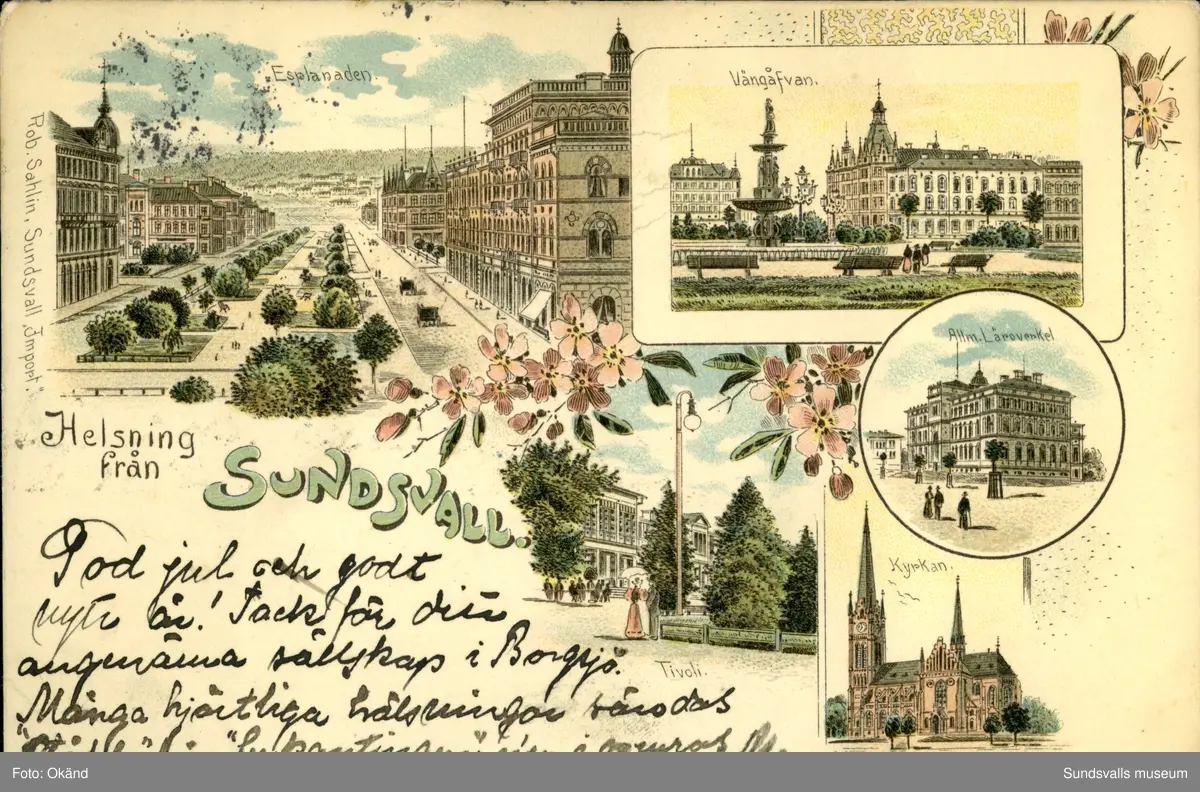 Esplanaden.
Vängåfvan.
Rob. Sahlin, Sundsvall „Import“
Allm. Läroverket
Helsning
från
SUNDSVALL.
Kyrkan.
Tivoli.
God jul och godt
nytt år! Tack för ditt
angenäma sällskap i Borgsjö.
Många hjärtliga hälsningar sändas
Foto: Okänd
Sundsvalls museum